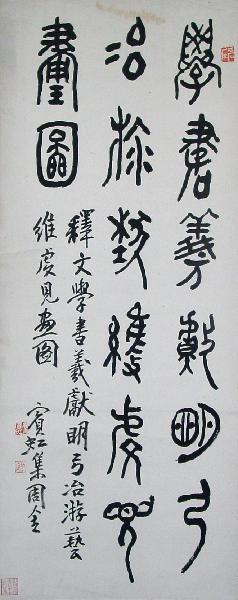 學書羲獻明弓
冶游藝維虔見
畫圖
釋文學書羲獻明弓冶游藝
維虔見画圖
賓虹集周金